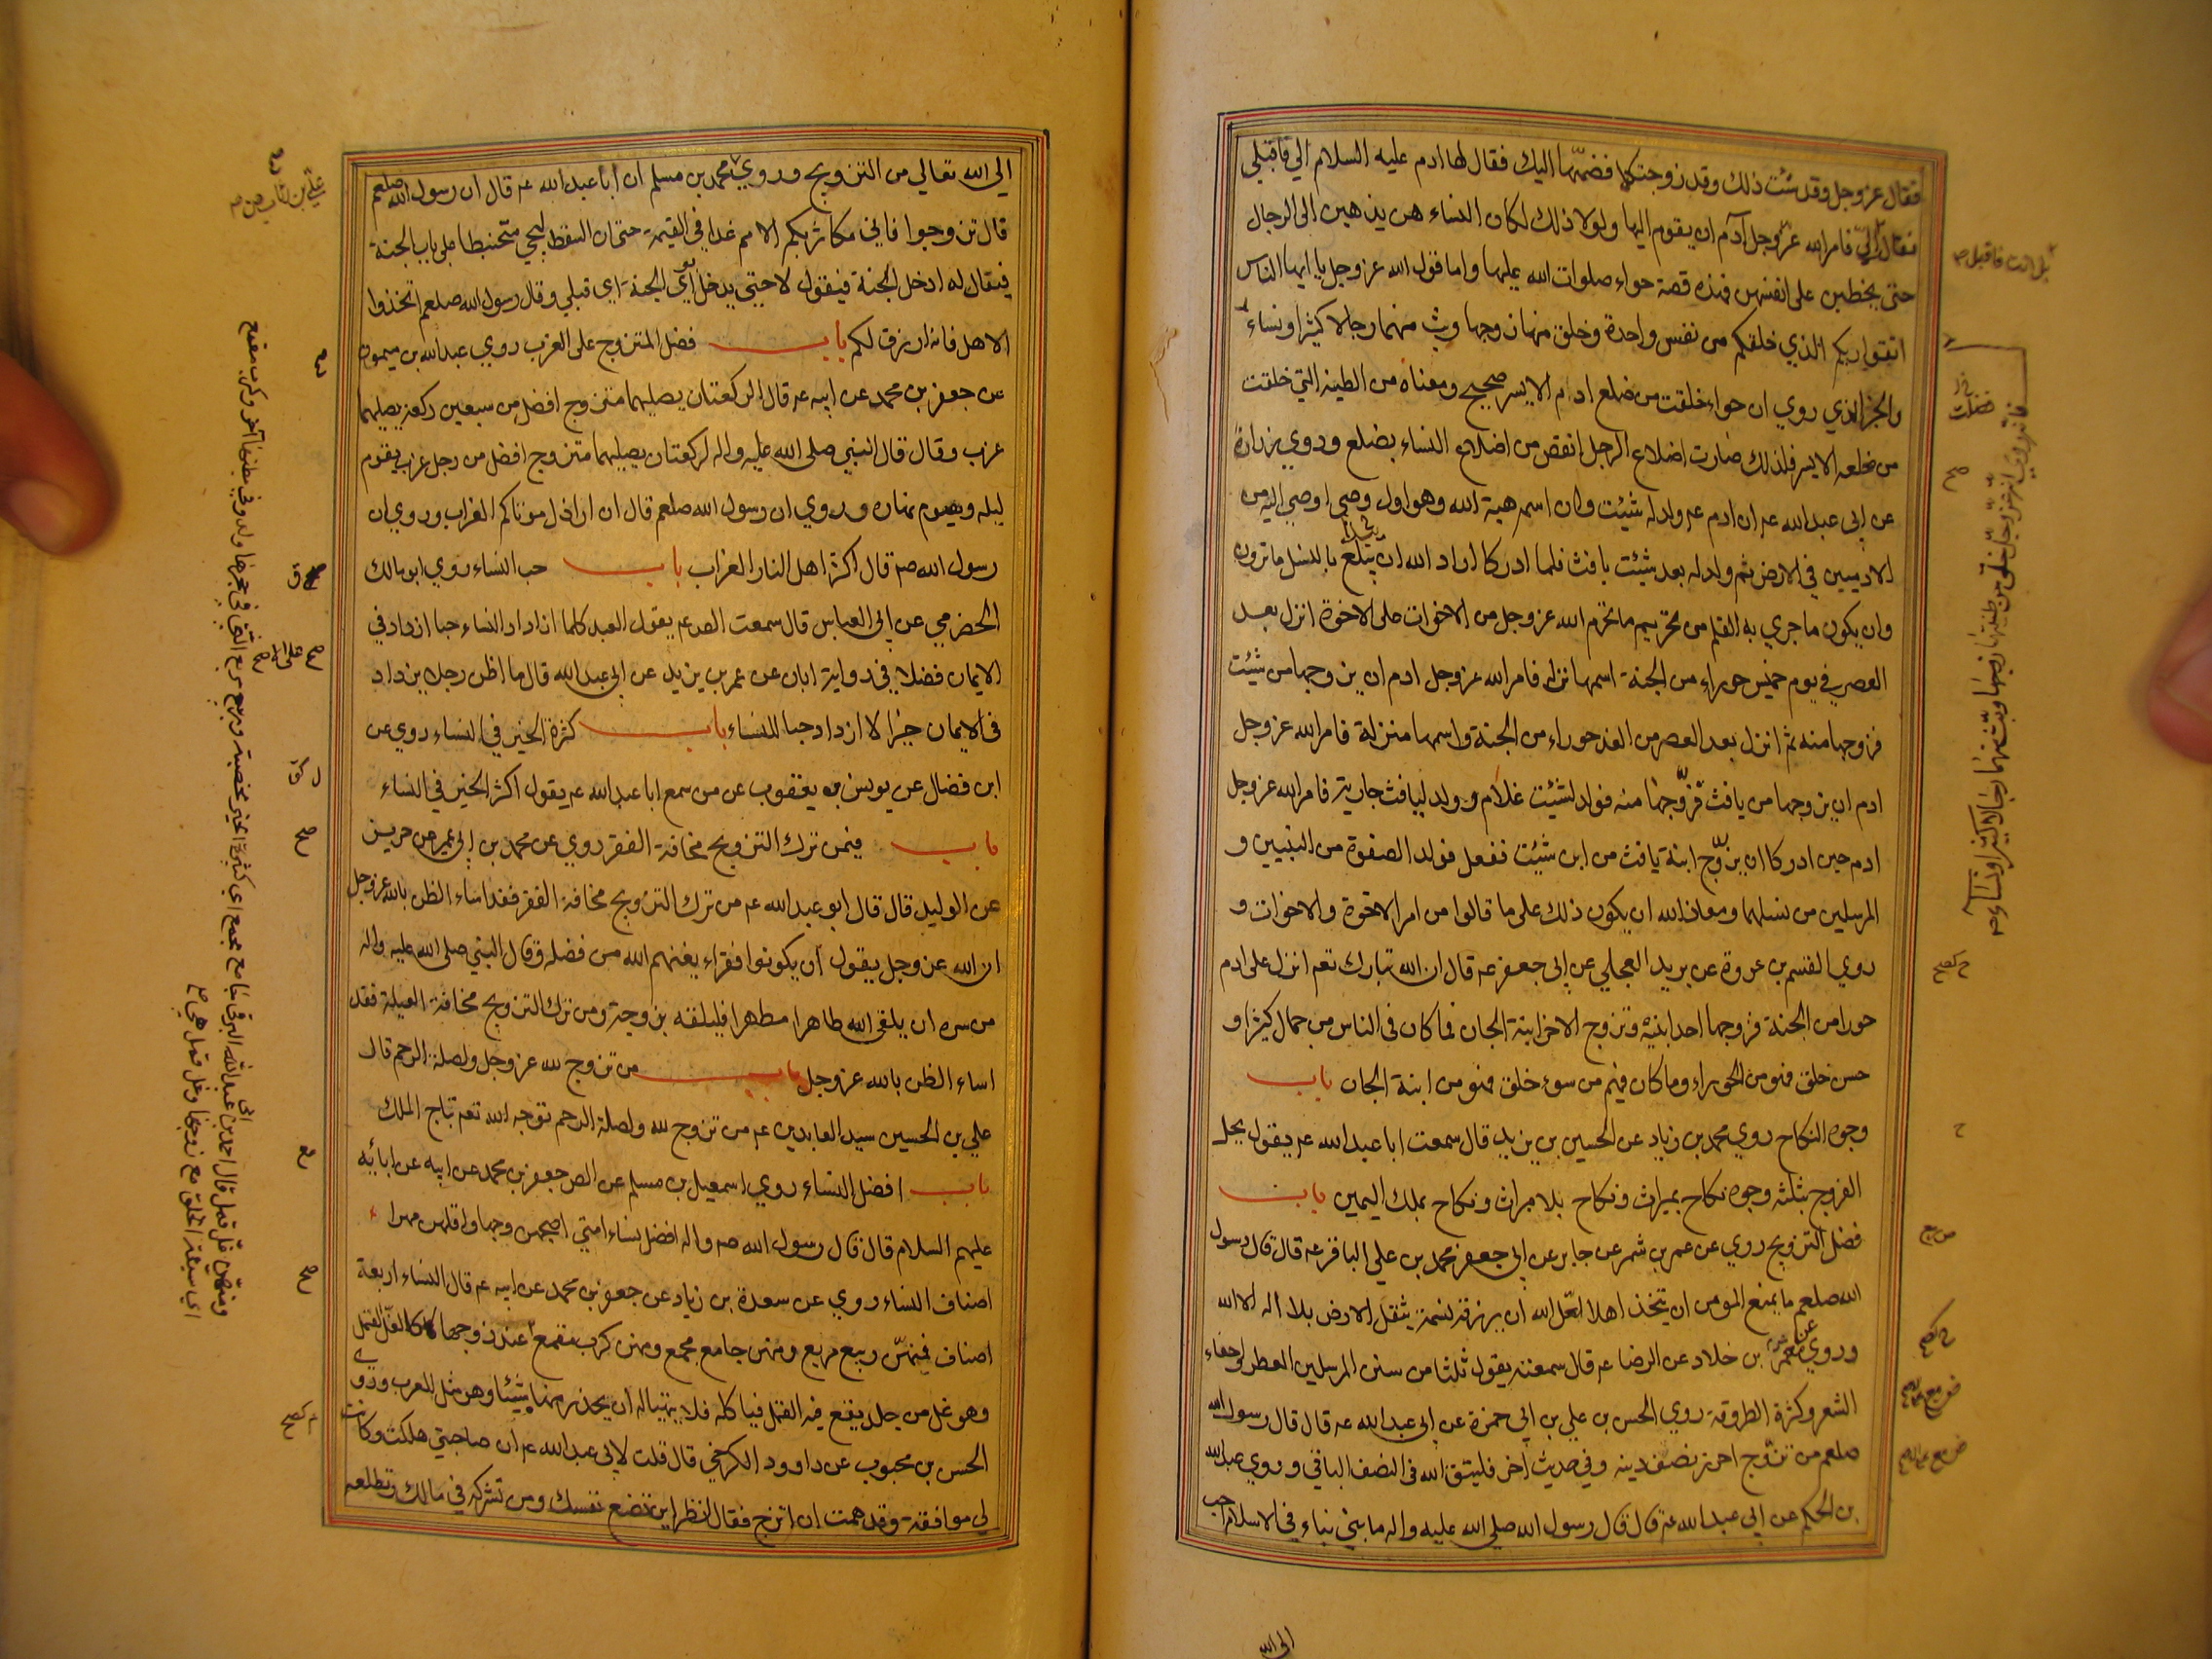 فقال عز وجل وقد شئت ذلك وقد زوجتكها فضمها اليك فقال لها ادم عليه السلام الي فاقبلي
فقالت الي فامر الله عز وجل آدم ان يقوم اليها ولولا ذلك لكان النساء هن يذهبن الى الرجال
حتى يخطبن على انفسهن فهذه قصة حواء صلوات الله عليها واما قول الله عز وجل يا ايها الناس
اتقوا ربكم الذي خلقكم من نفس واحدة وخلق منها زوجها وبث منهما رجالا كثيرا ونساء
والخبر الذي روي ان حواء خلقت من ضلع ادم الايسر صحيح ومعناه من الطينه التي خلقت
من ضلعه الايسر فلذلك صارت اضلاع الرجل انقص من اضلاع النساء بضلع وروي زرارة
عن ابي عبد الله عم ان ادم عم ولد له شيئت وان اسمه هبة الله وهو اول وصي اوصي اليه من
الادميين في الارض ثم ولد له بعد شيئت يافث فلما ادركا اراد الله ان يبلغ بالنسل ما ترون
وان يكون ما جري به القلم من تحريم ما حرم الله عز وجل من الاخوات على الاخوة انزل بعد
العصر في يوم خميس حوراء من الجنة اسمها نزلة فامر الله عز وجل ادم ان يزوجها من شيئت
فزوجها منه ثم انزل بعد العصر من الغد حوراء من الجنة واسمها منزلة فامر الله عز وجل
ادم ان يزوجها من يافث فزوجها منه فولد لشيئت غلام وولد ليافث جارية فامر الله عز وجل
ادم حين ادركا ان يزوج ابنة يافث من ابن شيئت ففعل فولد الصفوة من النبيين و
المرسلين من نسلهما ومعاذ الله ان يكون ذلك على ما قالوا من امر الاخوة والاخوات و
روي القسم بن عروة عن بريد العجلي عن ابي جعفر عم قال ان الله تبارك تعم انزل على ادم
حورا من الجنة فزوجها احد ابنيه وتزوج الاخر ابنة الجان فما كان في الناس من جمال كثير او
حسن خلق فهو من الحوراء وما كان فيهم من سوء خلق فهو من ابنة الجان باب
وجوه النكاح روي محمد بن زياد عن الحسين بن يزيد قال سمعت ابا عبد الله عم يقول يحل
الفروج بثلثه وجوه نكاح بميراث ونكاح بلا ميراث ونكاح بملك اليمين باب
فضل التزويج روي عن عمر بن شمر عن جابر عن ابي جعفر محمد بن علي الباقر عم قال قال رسول
الله صلعم ما يمنع المومن ان يتخذ اهلا لعل الله ان يرزقه نسمة يثقل الارض بلا اله الا الله
وروي عن معمر بن خلاد عن الرضا عم قال سمعته يقول ثلثا من سنن المرسلين العطر واحفاء
الشعر وكثرة الطروقة روي الحسن بن علي بن ابي حمزة عن ابي عبد الله عم قال قال رسول الله
صلعم من تزوج احرز نصف دينه وفي حديث آخر فليتق الله في النصف الباقي وروي عبد الله
بن الحكم عن ابي عبد الله عم قال قال رسول الله صلي الله عليه واله ما بني بناء في الاسلام احب
الى الله
الي الله تعالي من التزويج وروي محمد بن مسلم ان ابا عبد الله عم قال ان رسول الله صلعم
قال تزوجوا فاني مكاثر بكم الامم غدا في القيمة حتى ان السقط ليجي محنبطا على باب الجنة
فيقال له ادخل الجنة فيقول لا حتي يدخل ابوي الجنة اي قبلي وقال رسول الله صلعم اتخذوا
الاهل فانه ارزق لكم باب فضل المتزوج على العزب روي عبد الله بن ميمون
عن جعفر بن محمد عن ابيه عم قال الركعتان يصليهما متزوج افضل من سبعين ركعة يصليها
عزب وقال قال النبي صلى الله عليه واله لركعتان يصليهما متزوج افضل من رجل عزب يقوم
ليله ويصوم نهاره وروي ان رسول الله صلعم قال ان اراذل موتاكم العزاب وروي ان
رسول الله صم قال اكثر اهل النار العزاب باب حب النساء روي ابو مالك
الحضرمي عن ابي العباس قال سمعت الصدعم يقول العبد كلما ازداد للنساء حبا ازداد في
الايمان فضلا في رواية ابان عن عمر بن يزيد عن ابي عبد الله قال ما اظن رجلا يزداد
في الايمان خيرا لا ازداد حبا للنساء باب كثرة الخير في النساء روي عن
ابن فضال عن يونس بن يعقوب عن من سمع ابا عبد الله عم يقول اكثر الخير في النساء
باب فيمن ترك التزويج مخافة الفقر روي عن محمد بن ابي عمير عن حريز
عن الوليد قال قال ابو عبد الله عم من ترك التزويج مخافة الفقر فقد اساء الظن بالله عز وجل
ان الله عز وجل يقول ان يكونوا فقراء يغنهم الله من فضله وقال النبي صلى الله عليه واله
من سره ان يلقى الله طاهرا مطهرا فليلقه بزوجة ومن ترك التزويج مخافة العيلة فقد
اساء الظن بالله عز وجل باب من تزوج لله عز وجل ولصلة الرحم قال
علي بن الحسين سيد العابدين عم من تزوج لله ولصلة الرحم توجه الله تعم بتاج الملك
باب افضل النساء روي اسمعيل بن مسلم عن الص جعفر بن محمد عن ابيه عن ابائه
عليهم السلام قال قال رسول الله صم واله افضل نساء امتي اصبحهن وجها واقلهن مهرا
اصناف النساء روي عن سعدة بن زياد عن جعفر بن محمد عن ابيه عم قال النساء اربعة
اصناف فمنهن ربيع مربع ومنهن جامع مجمع ومنهن كرب مقمع عند زوجها كالغل القمل
وهو غل من جلد يقع فيه القمل فياكله فلا يتهيا له ان يحذر منها شيئا وهو مثل للعرب وروي
الحسن بن محبوب عن داوود الكرخي قال قلت لابي عبد الله عم ان صاحبتي هلكت وكانت
لي موافقة وقد هممت ان اتزوج فقال انظر اين تضع نفسك ومن تشركه في مالك وتطلعه